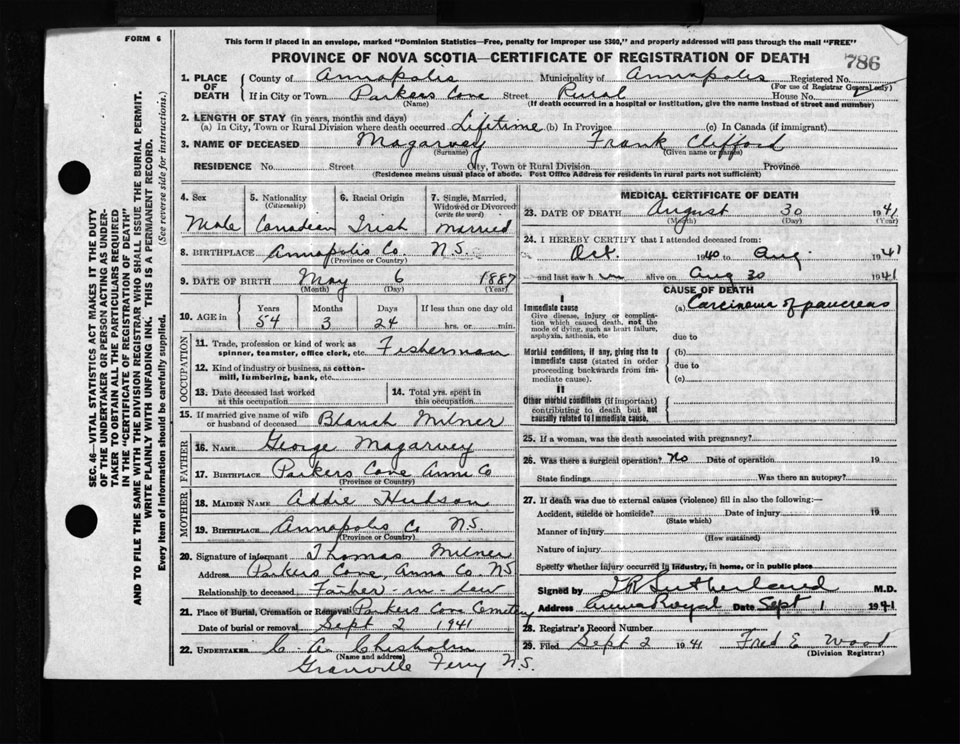 FORM 6
This form if placed in an envelope, marked "Dominion Statistics—Free, penalty for improper use $300," and properly addressed will pass through the mail "FREE"
PROVINCE OF NOVA SCOTIA—CERTIFICATE OF REGISTRATION OF DEATH
786
1. PLACE OF DEATH County of Annapolis Municipality of Annapolis Registered No.
(For use of Registrar General only)
If in City or Town Parkers Cove Street Rural House No.
(Name) (If death occurred in a hospital or institution, give the name instead of street and number)
2. LENGTH OF STAY (in years, months and days)
(a) In City, Town or Rural Division where death occurred Lifetime (b) In Province (c) In Canada (if immigrant)
3. NAME OF DECEASED Magarvey Frank Clifford
(Surname) (Given name or names)
RESIDENCE No. Street City, Town or Rural Division Province
(Residence means usual place of abode. Post Office Address for residents in rural parts not sufficient)
4. Sex 5. Nationality (Citizenship) 6. Racial Origin 7. Single, Married, Widowed or Divorced (write the word)
Male Canadian Irish Married
8. BIRTHPLACE Annapolis Co. N.S.
(Province or Country)
9. DATE OF BIRTH May 6 1887
(Month) (Day) (Year)
10. AGE Years Months Days If less than one day old
54 3 24 hrs. or min.
OCCUPATION
11. Trade, profession or kind of work as spinner, teamster, office clerk, etc. Fisherman
12. Kind of industry or business, as cotton-mill, lumbering, bank, etc.
13. Date deceased last worked at this occupation 14. Total yrs. spent in this occupation
15. If married give name of wife or husband of deceased Blanch Milner
FATHER
16. NAME George Magarvey
17. BIRTHPLACE Parkers Cove Anna Co
(Province or Country)
MOTHER
18. MAIDEN NAME Addie Hudson
19. BIRTHPLACE Annapolis Co N.S.
(Province or Country)
20. Signature of informant Thomas Milner
Address Parkers Cove, Anna Co. NS
Relationship to deceased Father-in-law
21. Place of Burial, Cremation or Removal Parkers Cove Cemetery
Date of burial or removal Sept 2 1941
22. UNDERTAKER C. A. Chisholm
(Name and address)
Granville Ferry N.S.
MEDICAL CERTIFICATE OF DEATH
23. DATE OF DEATH August 30 1941
(Month) (Day) (Year)
24. I HEREBY CERTIFY that I attended deceased from:
Oct. 1940 to Aug. 1941
and last saw him alive on Aug 30 1941
CAUSE OF DEATH
I
Immediate cause (a) Carcinoma of pancreas
Give disease, injury or complication which caused death, not the mode of dying, such as heart failure, asphyxia, asthenia, etc
due to
Morbid conditions, if any, giving rise to immediate cause (stated in order proceeding backwards from immediate cause).
(b)
due to
(c)
II
Other morbid conditions (if important) contributing to death but not causally related to immediate cause.
25. If a woman, was the death associated with pregnancy?
26. Was there a surgical operation? No Date of operation 19
State findings Was there an autopsy?
27. If death was due to external causes (violence) fill in also the following:—
Accident, suicide or homicide? Date of injury 19
(State which)
Manner of injury
(How sustained)
Nature of injury
Specify whether injury occurred in industry, in home, or in public place
Signed by Sutherland M.D.
Address Anna Royal Date Sept 1 1941
28. Registrar's Record Number
29. Filed Sept 2 1941 Fred E Wood
(Division Registrar)
SEC. 46—VITAL STATISTICS ACT MAKES IT THE DUTY
OF THE UNDERTAKER OR PERSON ACTING AS UNDER-
TAKER TO OBTAIN ALL THE PARTICULARS REQUIRED
IN THE "CERTIFICATE OF REGISTRATION OF DEATH"
AND TO FILE THE SAME WITH THE DIVISION REGISTRAR WHO SHALL ISSUE THE BURIAL PERMIT.
WRITE PLAINLY WITH UNFADING INK. THIS IS A PERMANENT RECORD.
Every item of information should be carefully supplied. (See reverse side for instructions.)